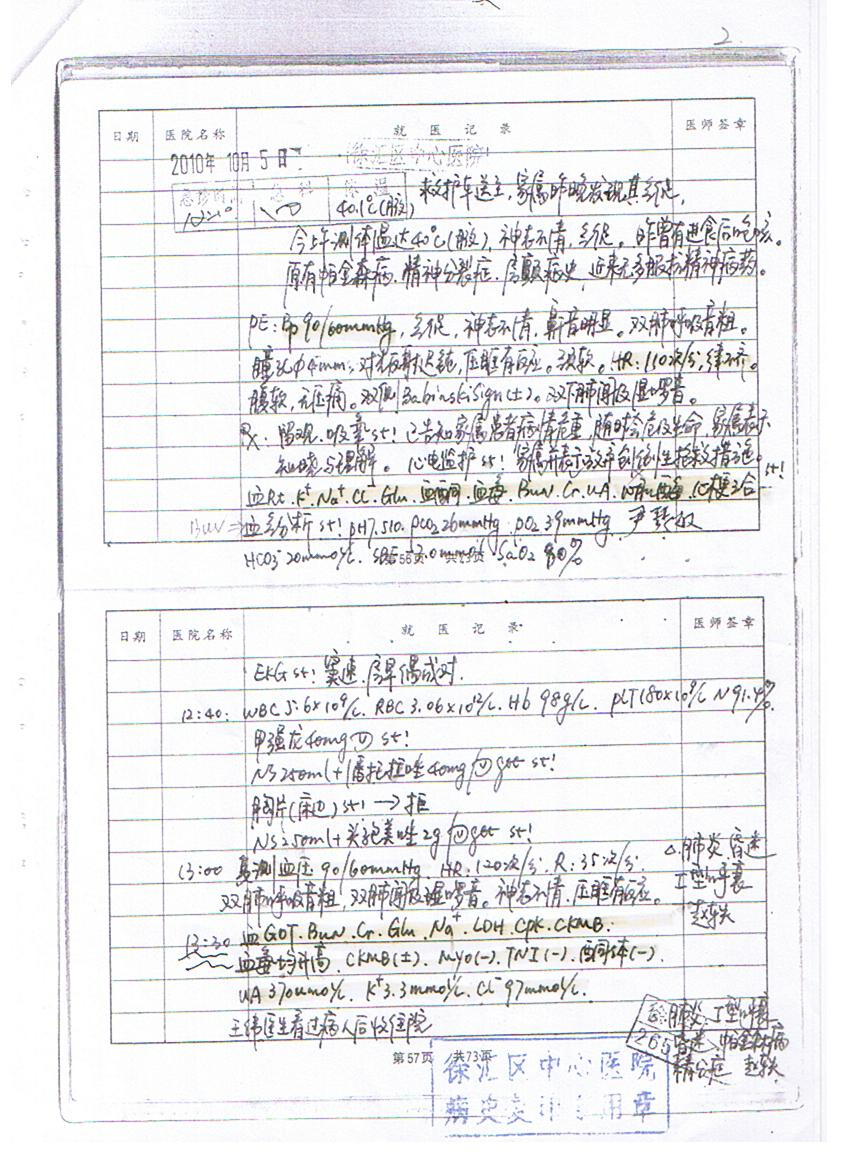 2
日期 医院名称 就医记录 医师签章
2010年10月5日 徐汇区中心医院
急诊 体温 40.1℃(腋) 救护车送至,家属昨晚发现其气促,
今上午测体温达40℃(腋),神志不清,气促。昨曾有进食后呛咳。
原有帕金森病、精神分裂症、房颤病史,近来无多服抗精神病药。
PE:BP 90/60mmHg,气促,神志不清,鼾音明显。双肺呼吸音粗。
瞳孔Φ4mm,对光反射迟钝,压眶有反应。颈软。HR:110次/分,律不齐。
腹软,无压痛。双侧Babinski sign(±)。双下肺闻及湿啰音。
Rx:留观.吸氧st!已告知家属患者病情危重,随时会危及生命,家属表示
知晓与理解。心电监护st!家属并表示放弃创伤性抢救措施。
血Rt.K⁺.Na⁺.Cl⁻.Glu.血酮.血毒.BuN.Cr.UA.心梗三合一 st!
血气分析st!pH7.510.pCO₂26mmHg.pO₂39mmHg
HCO₃⁻20mmol/L. SaO₂ 80%
第56页 共73页
日期 医院名称 就医记录 医师签章
EKG st!窦速.房早偶成对.
12:40: WBC 5.6×10⁹/L. RBC 3.06×10¹²/L. Hb 98g/L. PLT 180×10⁹/L N 91.4%
甲强龙40mg st!
NS 250ml+潘托拉唑40mg gtt st!
胸片(床边)st!→拒
NS 250ml+头孢美唑2g gtt st!
13:00 复测血压90/60mmHg.HR:120次/分.R:35次/分. △肺炎 昏迷
双肺呼吸音粗,双肺闻及湿啰音。神志不清,压眶有反应。 I型呼衰
赵轶
13:30 血GOT.BuN.Cr.Glu.Na⁺.LDH.CPK.CKMB.
血毒均升高.CKMB(±).MYO(-).TNI(-).酮体(-).
UA 370umol/L. K⁺3.3mmol/L. Cl⁻97mmol/L.
王纬医生看过病人后收住院
肺炎、I型呼衰
265 昏迷、帕金森病
精分症 赵轶
第57页 共73页
徐汇区中心医院
病史复印专用章